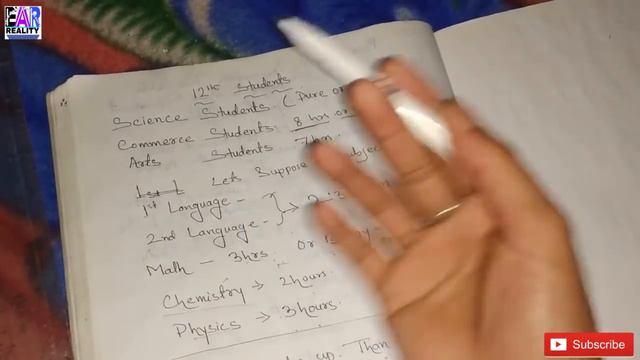 EAR
REALITY
12th Students
Science Students (Pure or
Commerce Students 8 hrs or
Arts Students 7 hrs.
Lets Suppose
1st Language -
2nd Language -
Math - 3hrs or
Chemistry → 2 hours.
Physics → 3 hours.
up. Than
Subscribe